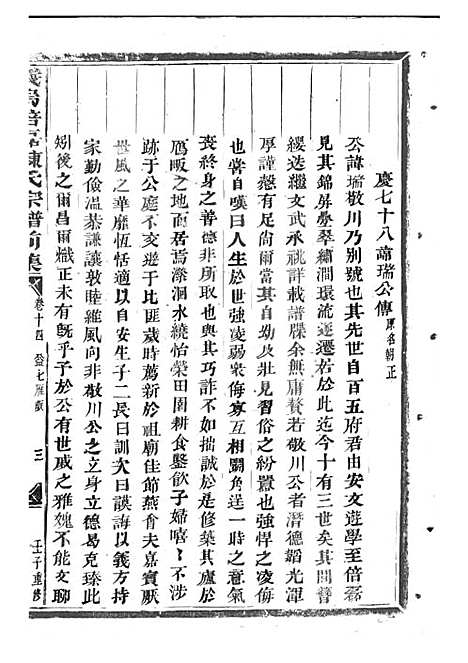 慶七十八諱瑞公傳原名朝正
公諱瑞敬川乃別號也其先世自百五府君由安文遊學至倍磊
見其錦屏疊翠繡澗環流遂遷若於此迄今十有三世矣其間簪
纓迭繼文武承祧詳載譜牒余無庸贅若敬川公者潛德韜光渾
厚謹慤有足尚爾當其自幼及壯見習俗之紛囂也強悍之凌侮
也嘗自嘆曰人生於世強凌弱衆侮寡互相鬬角逞一時之意氣
喪終身之善德非所取也與其巧詐不如拙誠於是修葺其廬於
鴈畈之地而居焉深洄水繞怡榮田園耕食鑿飲子婦嘻嘻不涉
跡于公庭不交遊于比匪歲時薦新於祖廟佳節燕會夫嘉賓厥
世風之華靡恆恬適以自安生子二長曰訓次曰謨誨以義方持
家勤儉溫恭謙讓敦睦維風向非敬川公之立身立德曷克臻此
矧後之爾昌爾熾正未有既乎予於公有世戚之雅媿不能文聊
義烏倍磊陳氏宗譜前集
卷十四
三
壬子重修